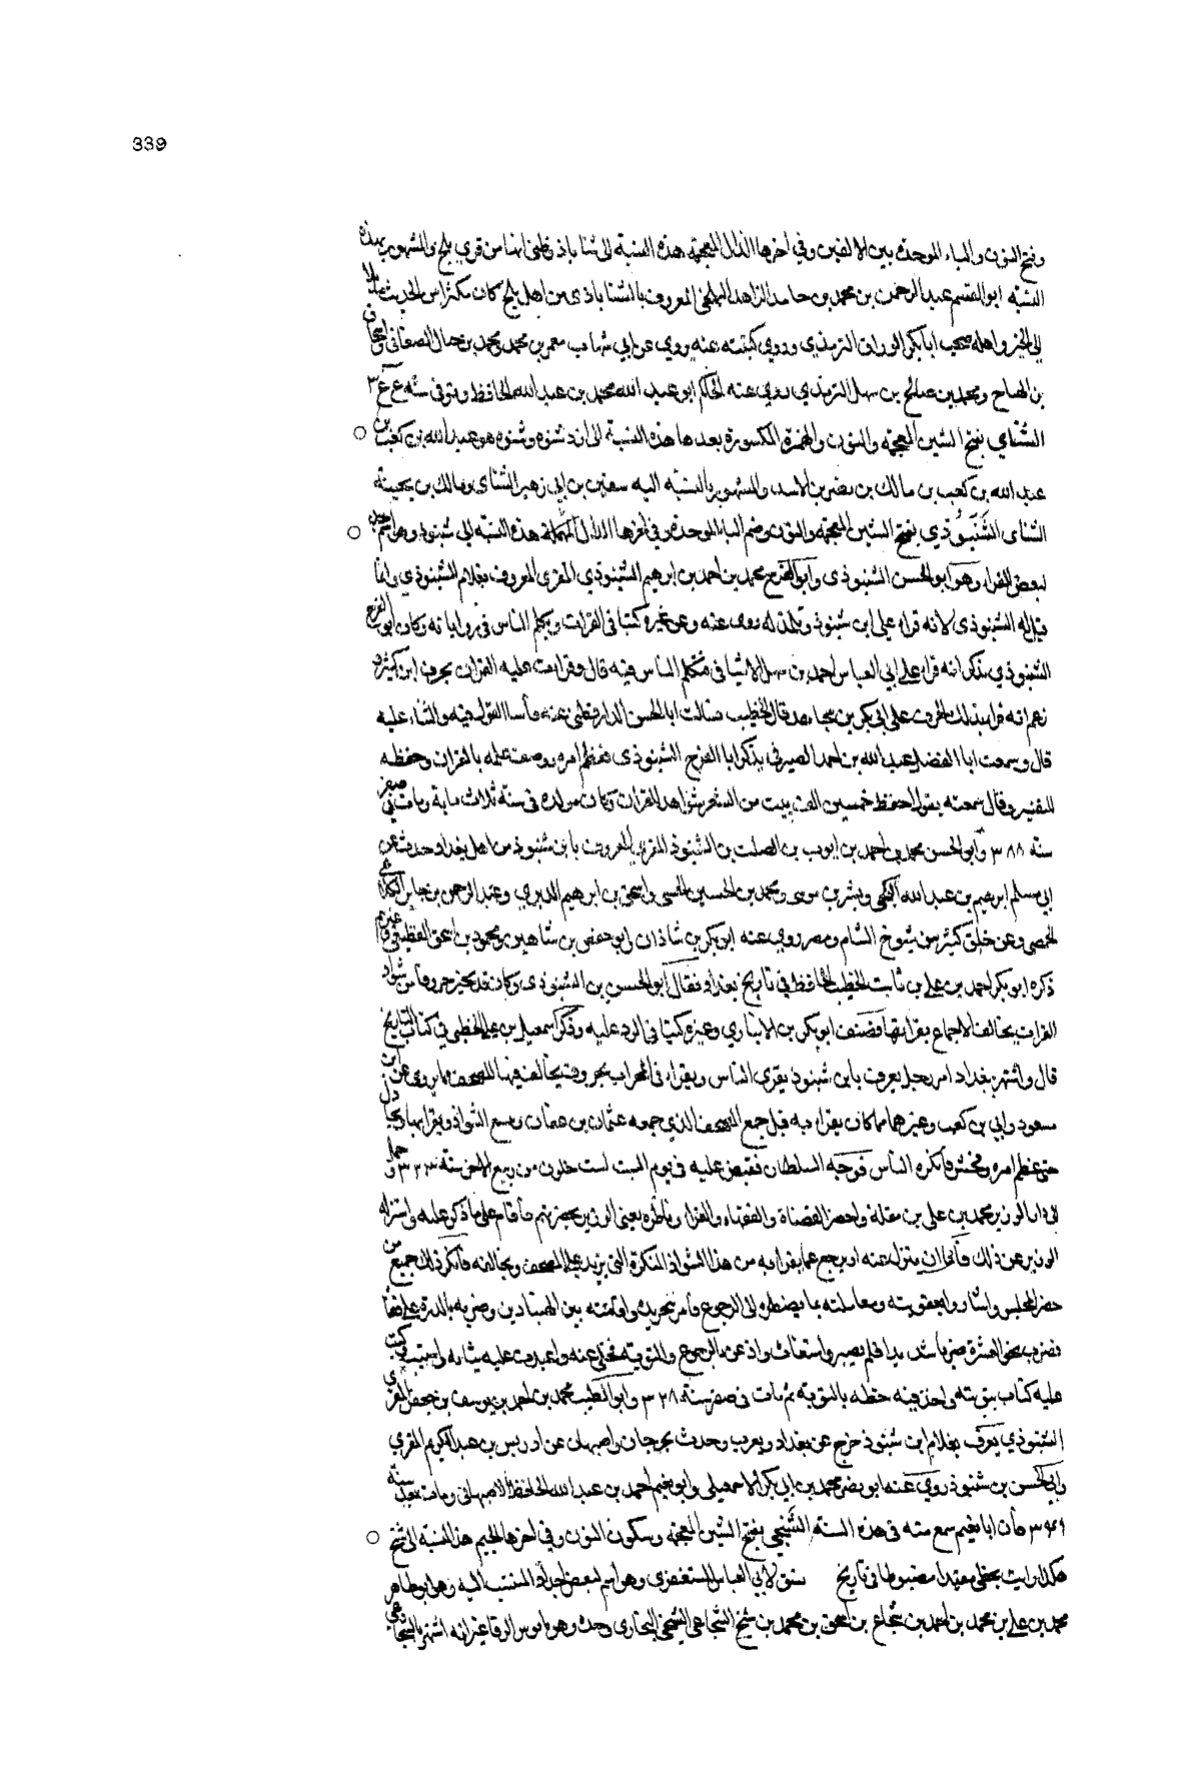 339
وفتح النون والباء الموحدة بين الالفين وفي اخرها الذال المعجمة هذه النسبة الى شنا باذ وظني انها من قرى بلخ والمشهور بهذه
النسبة ابو القسم عبد الرحمن بن محمد بن حامد الزاهد البلخي المعروف بالشنا باذى من اهل بلخ كان مكثرا من الحديث مايلا
الى الخير واهله صحب ابا بكر الوراق الترمذي وروى كتبه عنه يروي عن ابي شهاب معمر بن محمد ومحمد بن حبال الصغاني
بن الهياج ومحمد بن صالح بن سهل الترمذي روى عنه الحاكم ابو عبد الله محمد بن عبد الله الحافظ وتوفى سنة
الشنائي بفتح الشين المعجمة والنون والهمزة المكسورة بعدها هذه النسبة الى ازد شنوه وشنوه هو عبد الله بن كعب بن
عبد الله بن كعب بن مالك بن نضر بن الاسد والمشهور بالنسبة اليه سفين بن ابي زهير الشناى ومالك بن بحينة
الشناى الشنبوذي بفتح الشين المعجمة والنون وضم الباء الموحدة وفي اخرها الذال المهملة هذه النسبة الى شنبوذ وهو اسم لجد
لبعض القراء وهو ابو الحسن الشنبوذى وابو الفرج محمد بن احمد بن ابرهيم الشنبوذي المقرى المعروف بغلام الشنبوذي وانما
قيل له الشنبوذى لانه قراء على ابن شنبوذ وتلمذ له روى عنه وعن غيره كتبا في القرات وتكلم الناس في رواياته وكان ابو الفرج
الشنبوذي يذكر انه قراء على ابي العباس احمد بن سهل الاشنانى فتكلم الناس فيه قال وقرات عليه القران بحرف ابن كثير و
زعم انه قرا بذلك الحرف على ابي بكر بن مجاهد قال الخطيب فسالت ابا الحسن الدارقطني عنه فاسا القول فيه والثناء عليه
قال وسمعت ابا الفضل عبد الله بن احمد الصيرفي يذكر ابا الفرج الشنبوذى فعظم امره ووصف علمه بالقران وحفظه
للتفسير وقال سمعته يقول احفظ خمسين الف بيت من الشعر شواهد للقران وكان مولده فى سنة ثلاث ماية ومات في صفر
سنة ٣٨٨ وابو الحسن محمد بن احمد بن ايوب بن الصلت بن الشنبوذ المقرى المعروف بابن شنبوذ من اهل بغداد حدث عن
ابي مسلم ابرهيم بن عبد الله الكجى وبشر بن موسى ومحمد بن الحسين واسحق بن ابرهيم الدبري وعبد الرحمن بن جابر الكلاعي
الحمصي وعن خلق كثير من شيوخ الشام ومصر روى عنه ابو بكر بن شاذان وابو حفص بن شاهين ومحمد بن اسحق القطيعي وغيرهم
ذكره ابو بكر احمد بن علي بن ثابت الخطيب الحافظ في تاريخ بغداد فقال ابو الحسن بن الشنبوذى وكان قد تخير حروفا من شواذ
القرات يخالف الاجماع بقراتها فصنف ابو بكر بن الانباري وغيره كتبا في الرد عليه وذكر اسمعيل بن علي الخطبي في كتاب التاريخ
قال واشتهر ببغداد امر رجل يعرف بابن شنبوذ يقرى الناس ويقراء في المحراب بحروف يخالف فيها المصحف مما يروى عن ابن
مسعود وابي بن كعب وغيرهما مما كان يقراء به قبل جمع المصحف الذي جمعه عثمان بن عفان ويتتبع الشواذ ويقرا بها ويجادل
حتى عظم امره وفحش وانكره الناس فوجه السلطان فقبض عليه في يوم السبت لست خلون من ربيع الاخر سنة ٣٢٣ وحمل
الى دار الوزير محمد بن علي بن مقلة واحضر القضاة والفقهاء والقراء وناظره يعنى الوزير بحضرتهم فاقام على ما ذكر عليه واستنزله
الوزير عن ذلك فابى ان ينزل عنه او يرجع عما يقرا به من هذه الشواذ المنكرة التي تزيد على المصحف وتخالفه فانكر ذلك جميع من
حضر المجلس واشاروا بعقوبته ومعاملته بما يضطره الى الرجوع فامر بتجريده واقامته بين الهنبازين وضربه بالدرة على قفاه
فضرب نحو العشرة ضربا شديدا فلم يصبر واستغاث واذعن بالرجوع والتوبة فخلى عنه واعيدت عليه ثيابه واستتيب وكتب
عليه كتاب بتوبته واخذ فيه خطه بالتوبة ثم مات فى صفر سنة ٣٢٨ وابو الطيب محمد بن احمد بن يوسف بن جعفر المقرى
الشنبوذي يعرف بغلام ابن شنبوذ خرج عن بغداد وتغرب وحدث بجرجان واصبهان عن ادريس بن عبد الكريم المقري
وابي الحسن بن شنبوذ روى عنه ابو نصر محمد بن ابي بكر الاسمعيلي وابو نعيم احمد بن عبد الله الحافظ الاصبهاني ومات بعد سنة
٣٤٩ فان ابا نعيم سمع منه فى هذه السنة الشنجي بفتح الشين المعجمة وسكون النون وفي اخرها الجيم هذه النسبة الى شنج
هكذا رايت بخطى مقيدا مضبوطا في تاريخ نسف لابي العباس المستغفرى وهو اسم لبعض اجداد المنتسب اليه وهو ابو طاهر
محمد بن علي بن محمد بن احمد بن شجاع بن اسحق بن محمد بن شيخ الشجاعى الشنجي البخارى وحدث وهو غير انه اشتهر بالشجاعي